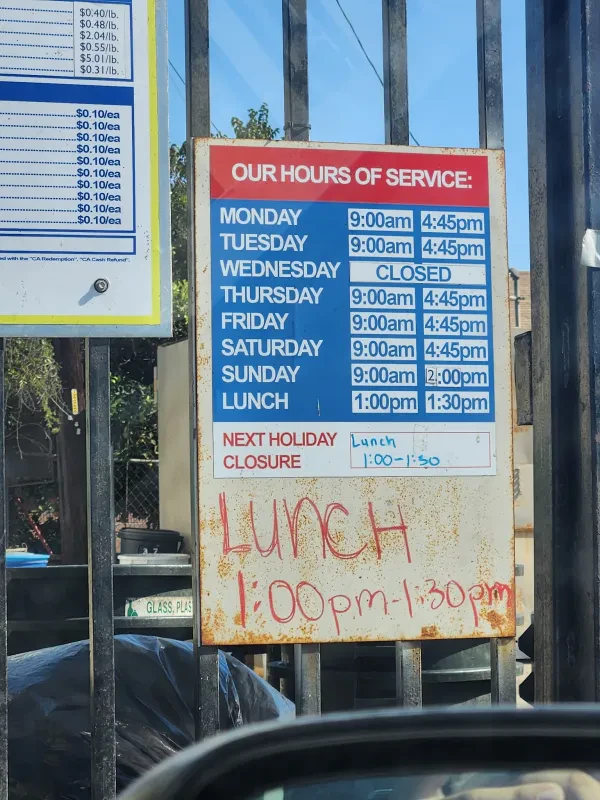 $0.40/lb.
$0.48/lb.
$2.04/lb.
$0.55/lb.
$5.01/lb.
$0.31/lb.
$0.10/ea
$0.10/ea
$0.10/ea
$0.10/ea
$0.10/ea
$0.10/ea
$0.10/ea
$0.10/ea
$0.10/ea
ed with the "CA Redemption", "CA Cash Refund".
OUR HOURS OF SERVICE:
MONDAY 9:00am 4:45pm
TUESDAY 9:00am 4:45pm
WEDNESDAY CLOSED
THURSDAY 9:00am 4:45pm
FRIDAY 9:00am 4:45pm
SATURDAY 9:00am 4:45pm
SUNDAY 9:00am 2:00pm
LUNCH 1:00pm 1:30pm
NEXT HOLIDAY Lunch
CLOSURE 1:00-1:30
LUNCH
1:00pm-1:30pm
GLASS, PLAS